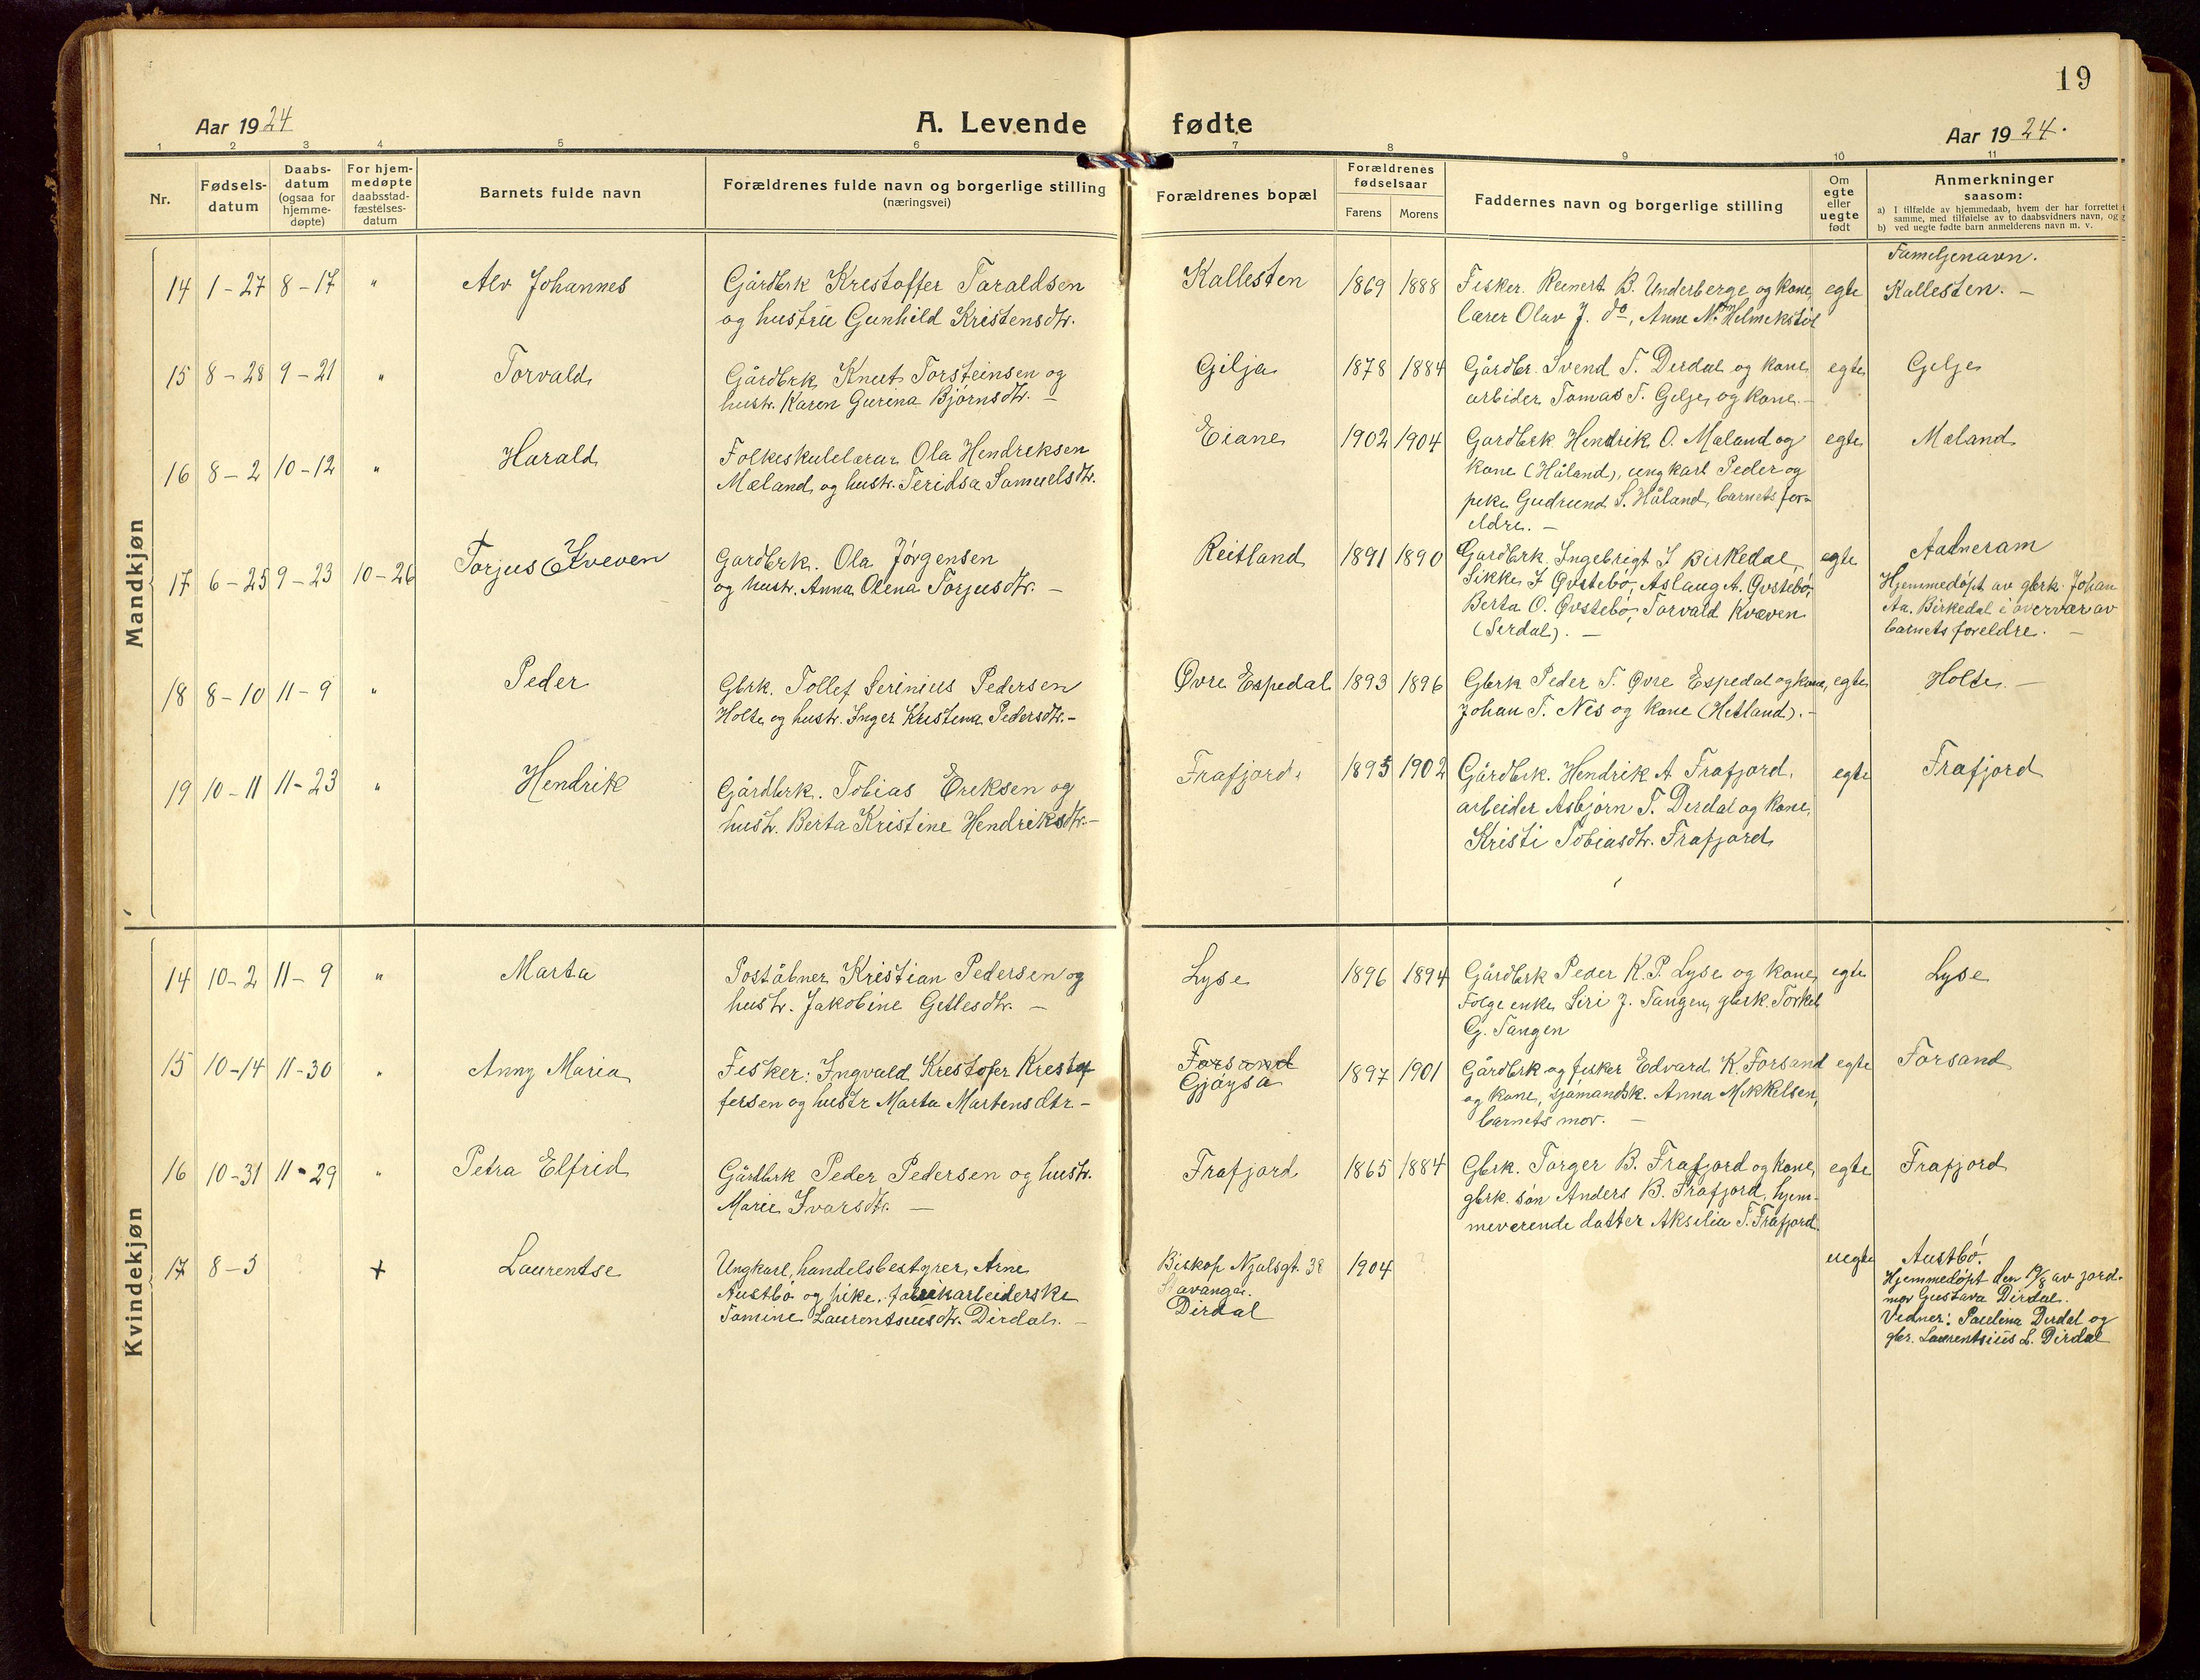 19
Aar 1924
A. Levende fødte
Aar 1924.
1 2 3 4 5 6 7 8 9 10 11
Nr.
Fødsels-
datum
Daabs-
datum
(ogsaa for
hjemme-
døpte)
For hjem-
medøpte
daabsstad-
fæstelses-
datum
Barnets fulde navn
Forældrenes fulde navn og borgerlige stilling
(næringsvei)
Forældrenes bopæl
Forældrenes
fødselsaar
Farens Morens
Faddernes navn og borgerlige stilling
Om
egte
eller
uegte
født
Anmerkninger
saasom:
a) I tilfælde av hjemmedaab, hvem der har forrettet
samme, med tilføielse av to daabsvidners navn, og
b) ved uegte fødte barn anmelderens navn m. v.
Mandkjøn
14 1-27 8-17 " Alv Johannes
Gårdbrk Krestoffer Taraldsen
og hustru Gunhild Kristensdtr.
Kallesten 1869 1888
Fisker. Reinert B. Underberge og kone,
lærer Olav J. do, Anne M. Helmekstøl
egte
Familjenavn.
Kallesten. -
15 8-28 9-21 " Torvald
Gårdbrk Knut Torsteinsen og
hustr. Karen Gurina Bjørnsdtr. -
Gilja 1878 1884
Gårdbr. Svend T. Dirdal og kone,
arbider Tomas T. Gelje, og kone. -
egte Gelje
16 8-2 10-12 " Harald
Folkeskulelærar Ola Hendriksen
Mæland og hustr. Teridsa Samuelsdtr.
Eiane 1902 1904
Gardbrk Hendrik O. Mæland og
kone (Håland), ungkarl Peder og
pike Gudrund S. Håland, barnets for-
eldre. -
egte Mæland
17 6-25 9-23 10-26 Torjus Kveven
Gardbrk. Ola Jørgensen
og hustr. Anna Olena Torjusdtr. -
Reitland 1891 1890
Gardbrk. Ingebrigt I Birkedal,
Sikke I Øvstebø, Aslaug A. Øvstebø,
Berta O. Øvstebø, Torvald Kvæven
(Serdal). -
egte
Aadneram
Hjemmedøpt av gbrk. Johan
Aa. Birkedal i overvær av
barnets foreldre. -
18 8-10 11-9 " Peder
Gbrk. Tollef Serinius Pedersen
Holte og hustr. Inger Kristina Pedersdtr. -
Øvre Espedal 1893 1896
Gbrk Peder T. Øvre Espedal og kone,
Johan T. Nes og kone (Hetland). -
egte Holte. -
19 10-11 11-23 " Hendrik
Gårdbrk. Tobias Eriksen og
hustr. Berta Kristine Hendriksdtr. -
Frafjord. 1895 1902
Gårdbrk. Hendrik A Frafjord,
arbeider Asbjørn T. Dirdal og kone,
Kristi Tobiasdtr. Frafjord
egte Frafjord
Kvindekjøn
14 10-2 11-9 " Marta
Poståbner Kristian Pedersen og
hustr. Jakobine Getlesdtr. -
Lyse 1896 1894
Gårdbrk Peder K.P. Lyse og kone,
Folgeenke Siri J. Tangen, gbrk. Torkel
G. Tangen
egte Lyse
15 10-14 11-30 " Anny Maria
Fisker: Ingvald Krestofer Krestof
fersen og hustr Marta Martensdtr -
Forsand
Gjøysa
1897 1901
Gårdbrk og fisker Edvard K. Forsand
og kone, sjømandsk. Anna Mikkelsen,
barnets mor. -
egte Forsand
16 10-31 11-29 " Petra Elfrid
Gårdbrk Peder Pedersen og hustr.
Marie Ivarsdtr. -
Frafjord 1865 1884
Gbrk. Torger B. Frafjord og kone,
gbrk. søn Anders B. Frafjord, hjem-
meverende datter Aksilia T. Frafjord.
egte Frafjord
17 8-3 + Laurentse
Ungkarl, handelsbestyrer, Arne
Austbø og pike, fabrikarbeiderske
Tomine Laurentsiusdtr. Dirdal. -
Biskop Njalsgt. 38
Stavanger.
Dirdal
1904
uegte
Austbø.
Hjemmedøpt den 19/8 av jord-
mor Gustava Dirdal.
Vidner: Paulina Dirdal og
gbr. Laurentsius L. Dirdal